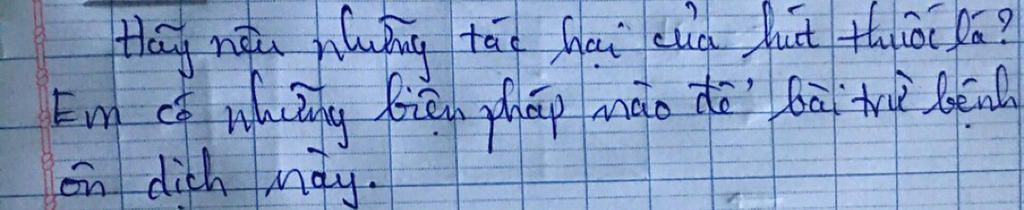 Hãy nêu những tác hại của hút thuốc lá?
Em có những biện pháp nào để bài trừ bệnh
ôn dịch này.